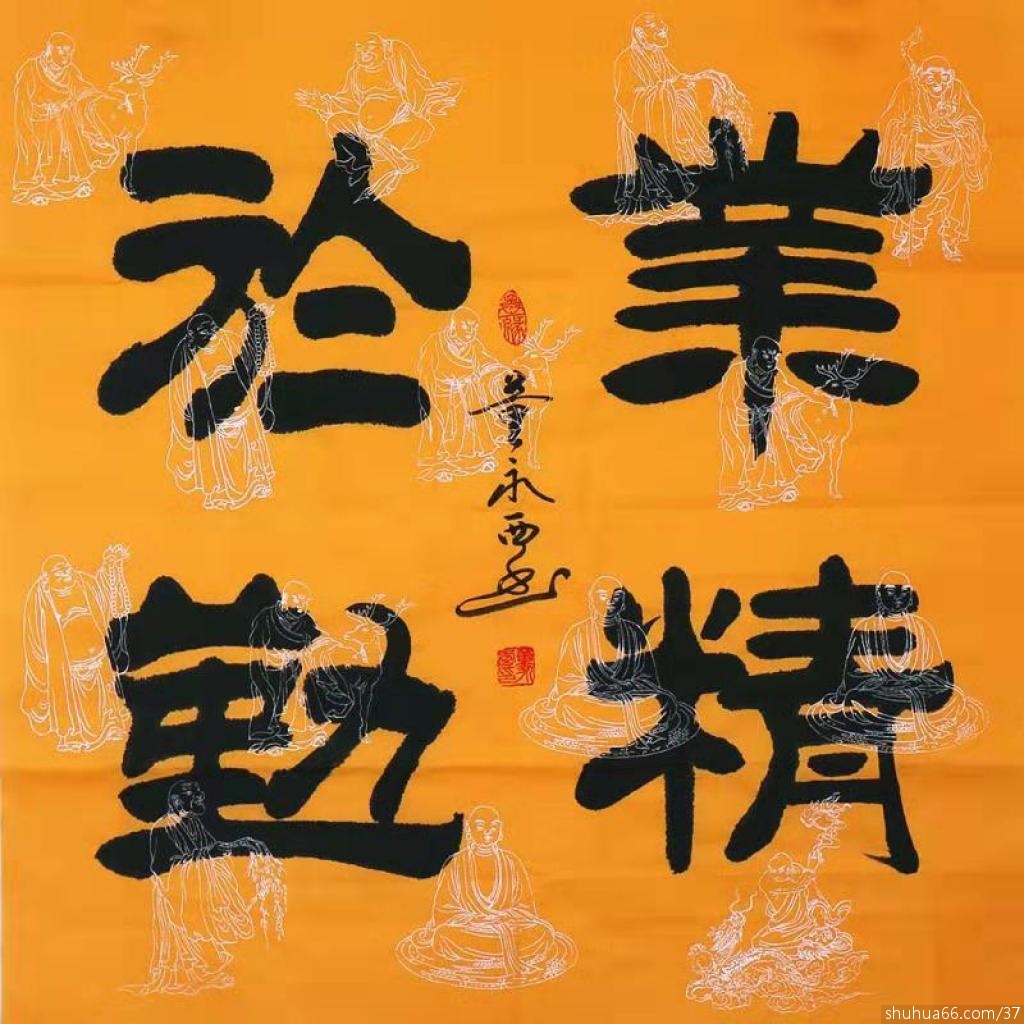 業精
於勤
董永西书
shuhua66.com/37